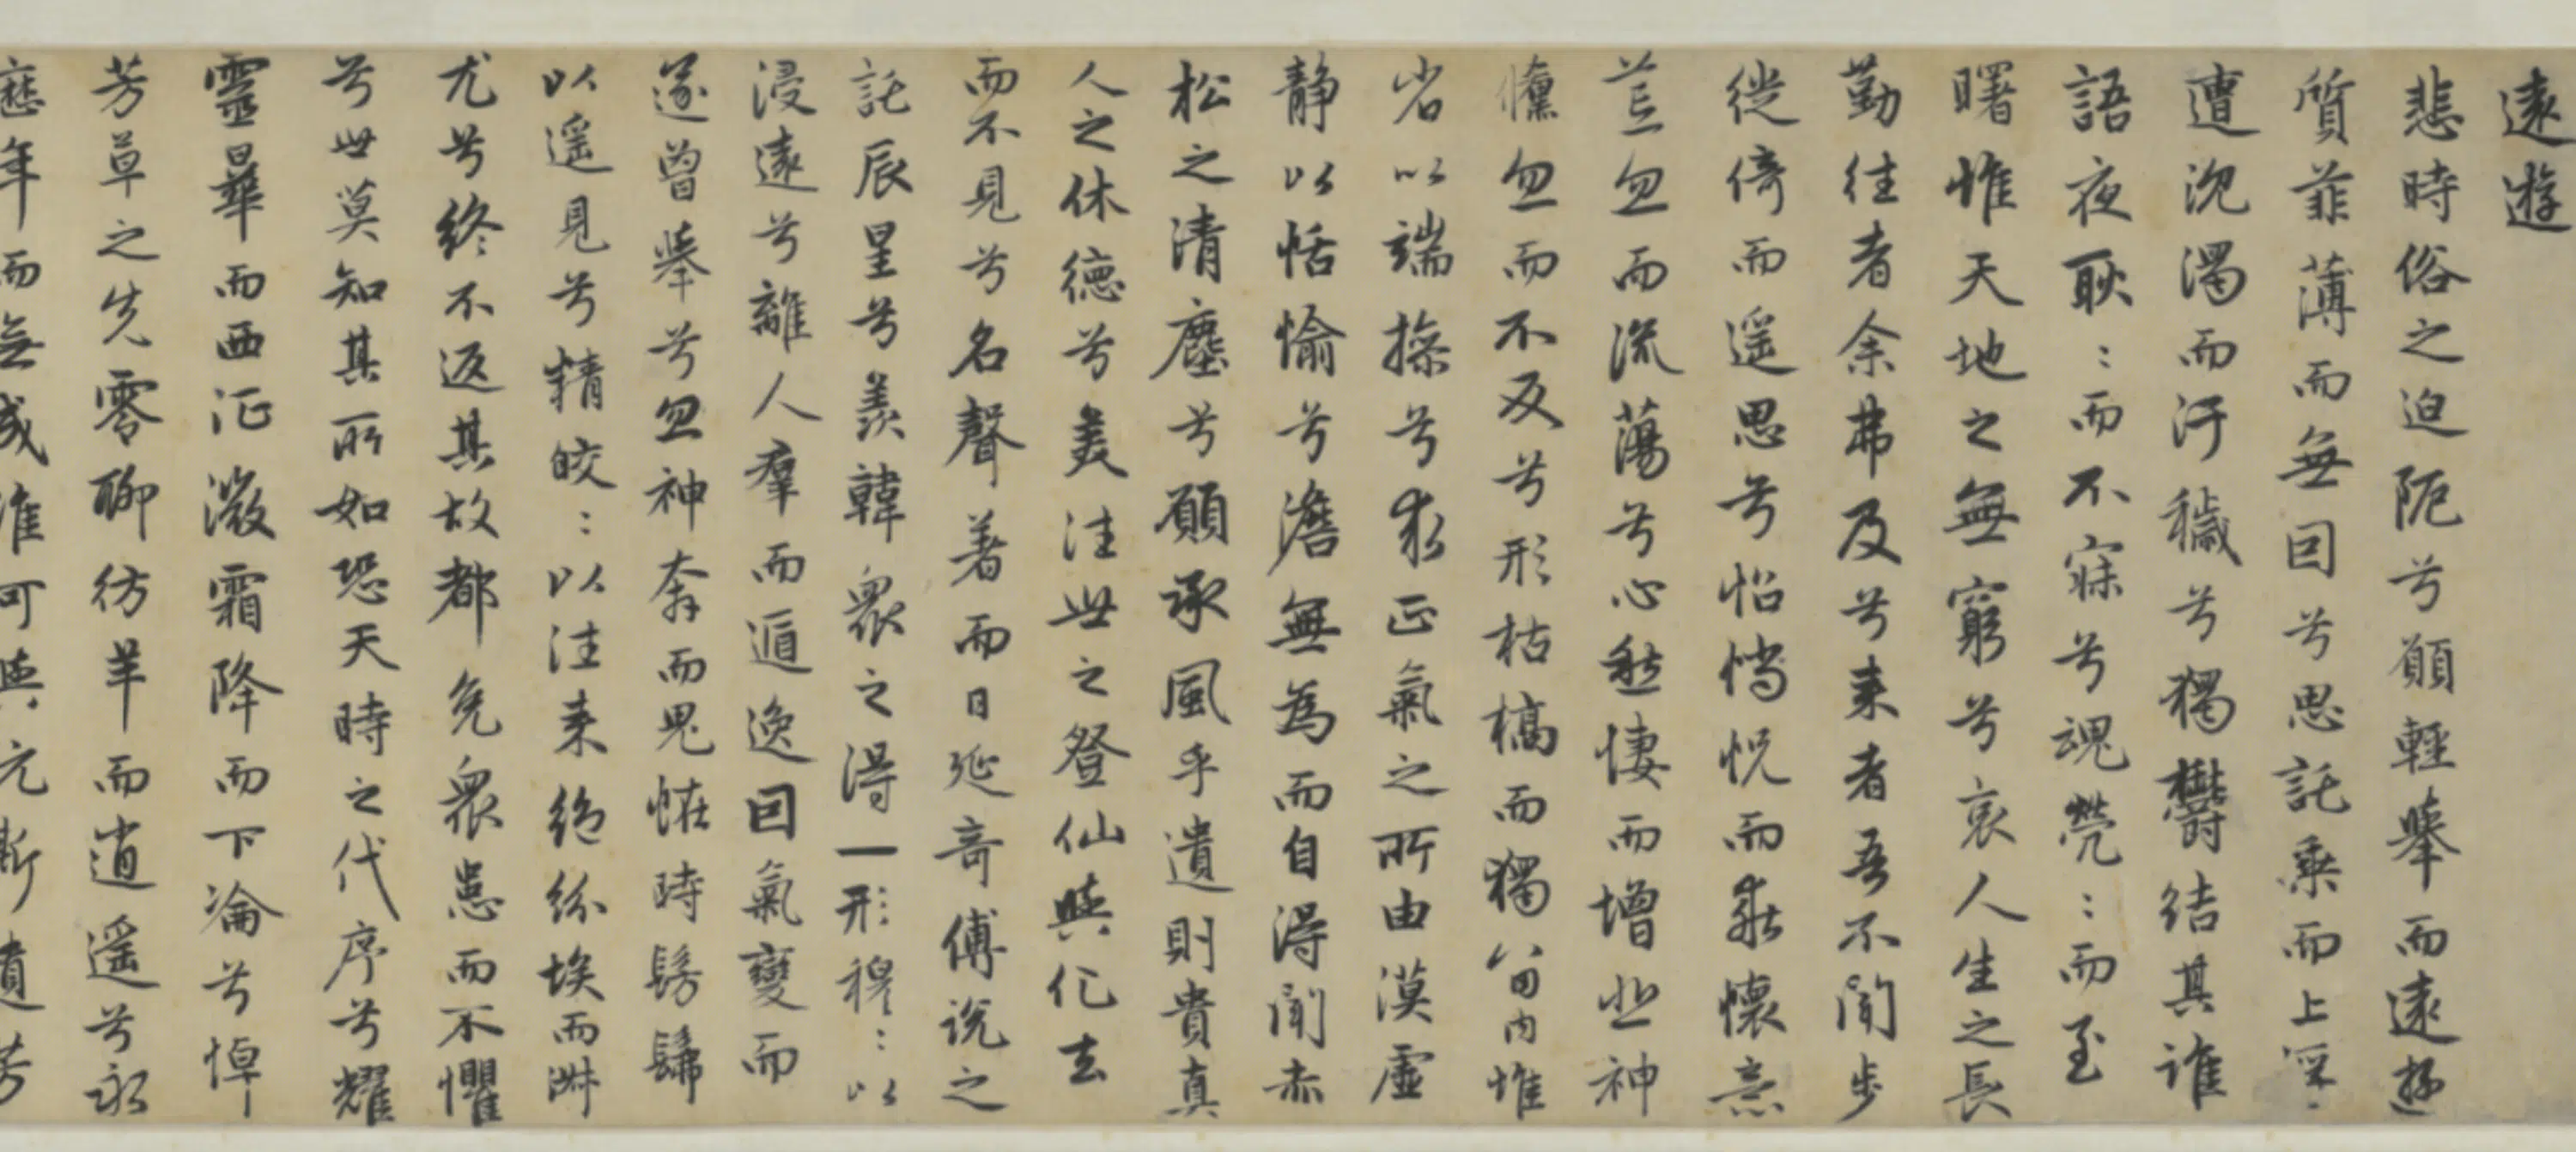 遠遊
悲時俗之迫阨兮願輕舉而遠遊
質菲薄而無因兮思託乘而上浮
遭沈濁而汙穢兮獨鬱結其誰
語夜耿〻而不寐兮魂煢〻而至
曙惟天地之無窮兮哀人生之長
勤往者余弗及兮来者吾不聞步
徙倚而遥思兮怊惝怳而乖懷意
荒忽而流蕩兮心愁悽而增悲神
儵忽而不反兮形枯槁而獨留内惟
省以端操兮求正氣之所由漠虚
静以恬愉兮澹無為而自得聞赤
松之清塵兮願承風乎遺則貴真
人之休德兮羨往世之登仙與化去
而不見兮名聲著而日延奇傅說之
託辰星兮羨韓衆之得一形穆〻以
浸遠兮離人羣而遁逸因氣變而
遂曾舉兮忽神奔而鬼恠時髣髴
以遥見兮精皎〻以往来絶紛埃而淑
尤兮終不返其故都免衆患而不懼
兮世莫知其所如恐天時之代序兮耀
靈曅而西征微霜降而下淪兮悼
芳草之先零聊彷羊而逍遥兮永
歷年而無成誰可與玩斯遺芳